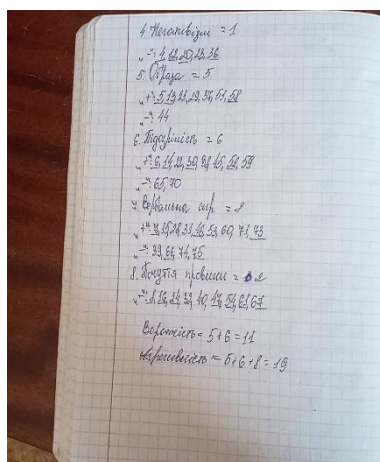 4. Негативізм = 1
"-": 4, 12, 20, 23, 36
5. Образа = 5
"+": 5, 13, 21, 29, 37, 51, 58
"-": 44
6. Підозрілість = 6
"+": 6, 14, 22, 30, 38, 45, 52, 59
"-": 65, 70
7. Вербальна агр. = 8
"+": 7, 15, 28, 31, 46, 53, 60, 71, 73
"-": 39, 66, 74, 75
8. Почуття провини =
"+": 8, 16, 24, 32, 40, 47, 54, 61, 67
Ворожість = 5+6 = 11
Агресивність = 5+6+8 = 19